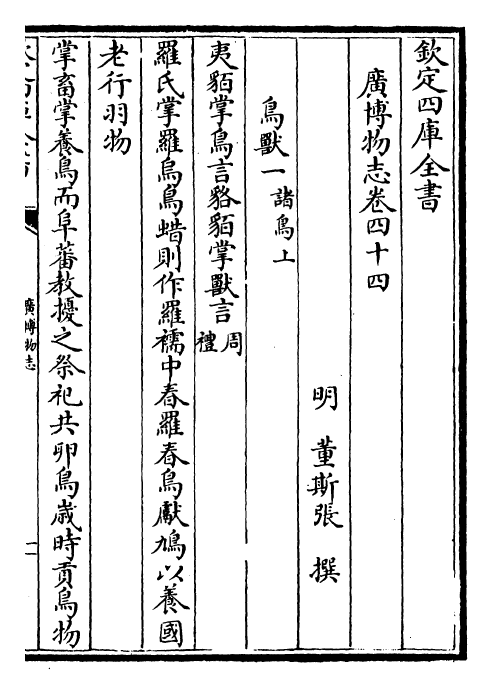 欽定四庫全書
廣博物志卷四十四
明 董斯張 撰
鳥獸一 諸鳥上
夷貊掌鳥言貉貊掌獸言 周禮
羅氏掌羅烏鳥蜡則作羅襦中春羅春鳥獻鳩以養國
老行羽物
掌畜掌養鳥而阜蕃教擾之祭祀共卵鳥歳時貢鳥物
廣博物志